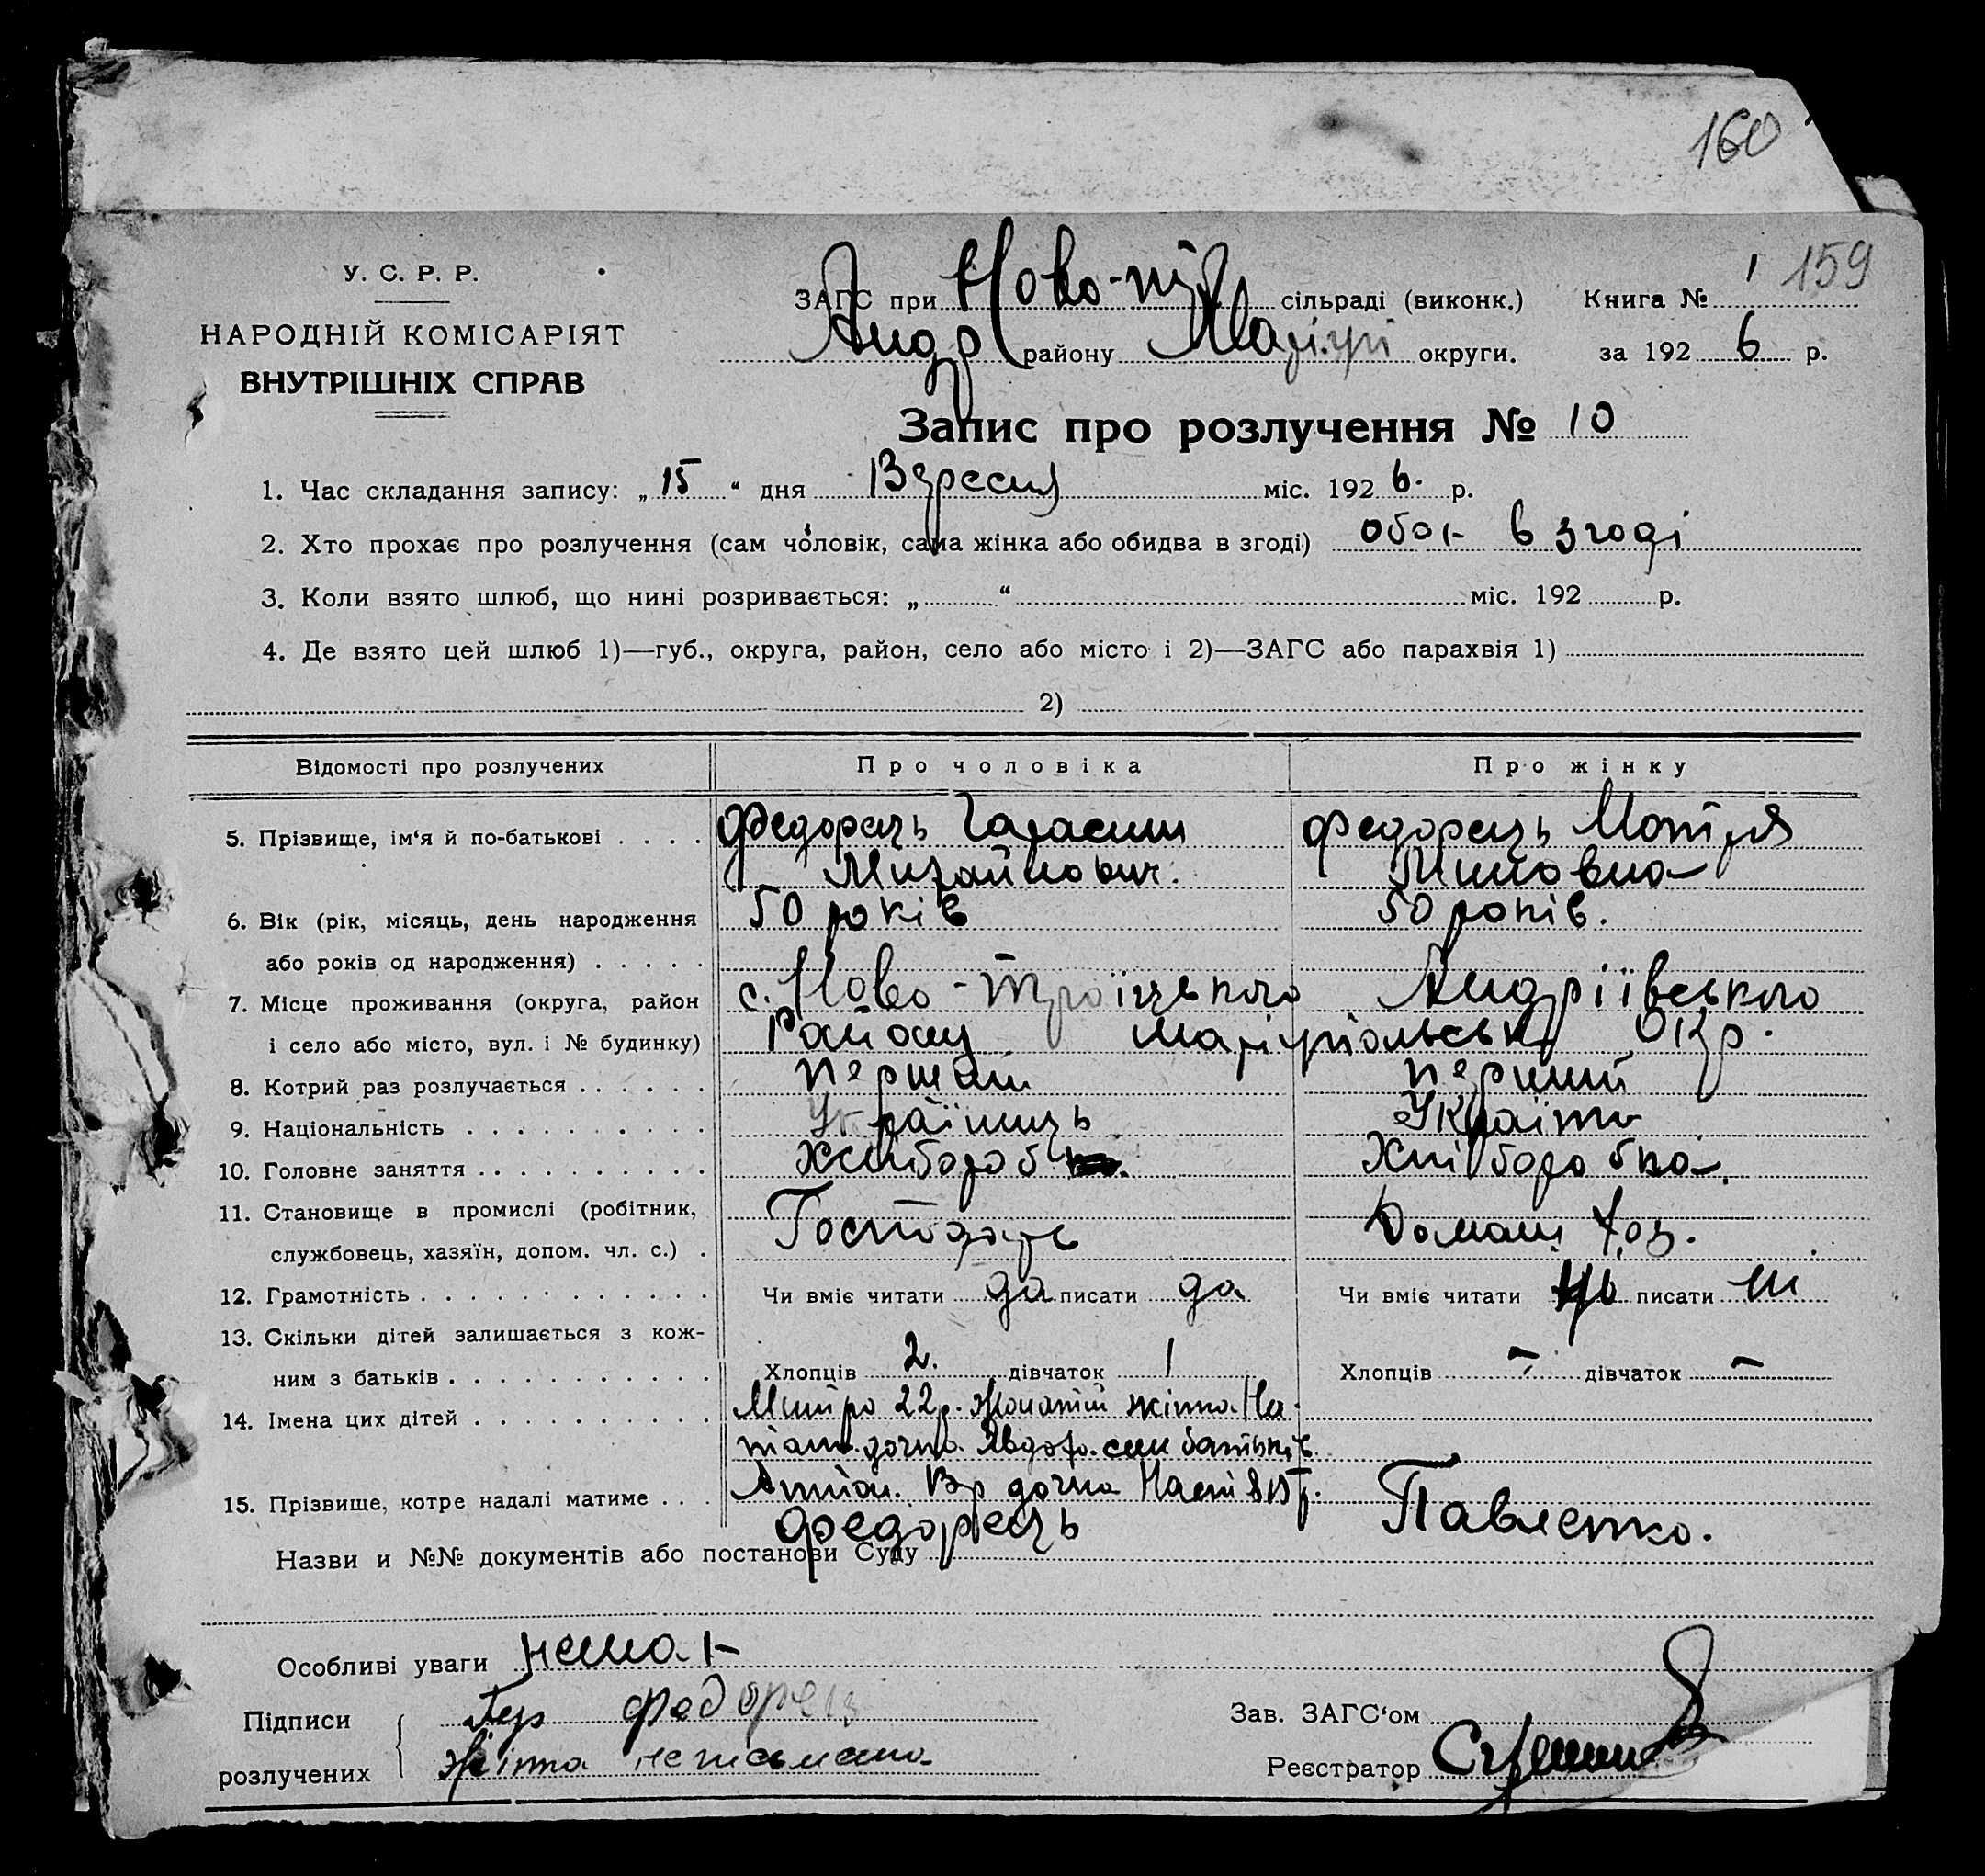 160
159
У. С. Р. Р.
НАРОДНІЙ КОМІСАРІЯТ
ВНУТРІШНІХ СПРАВ
ЗАГС при Ново- сільраді (виконк.) Книга № 1
Андр району округи. за 192 6 р.
Запис про розлучення № 10
1. Час складання запису: „ 15 “ дня Вересня міс. 192 6. р.
2. Хто прохає про розлучення (сам чоловік, сама жінка або обидва в згоді) в згоді
3. Коли взято шлюб, що нині розривається: „ “ міс. 192 р.
4. Де взято цей шлюб 1)—губ., округа, район, село або місто і 2)—ЗАГС або парахвія 1)
2)
Відомості про розлучених Про чоловіка Про жінку
5. Прізвище, ім‘я й по-батькові Федорець Гарасим Федорець Мотря
Михайлович.
6. Вік (рік, місяць, день народження 50 років 50 років.
або років од народження)
7. Місце проживання (округа, район с. Ново-Троїцького Андріївського
і село або місто, вул. і № будинку) Району Маріупольськ Окр.
8. Котрий раз розлучається перший перший
9. Національність Українець
10. Головне заняття Хлібороб Хліборобка
11. Становище в промислі (робітник, Господарь Домаш. хоз.
службовець, хазяїн, допом. чл. с.)
12. Грамотність Чи вміє читати да писати да Чи вміє читати писати ні
13. Скільки дітей залишається з кож-
ним з батьків Хлопців 2. дівчаток 1 Хлопців – дівчаток –
14. Імена цих дітей 22р. жінка На-
дочка
дочка
15. Прізвище, котре надалі матиме Федорець Павленко.
Назви и №№ документів або постанови Суду
Особливі уваги
Підписи Федорец
розлучених жінка неписьмена
Зав. ЗАГС‘ом
Реєстратор